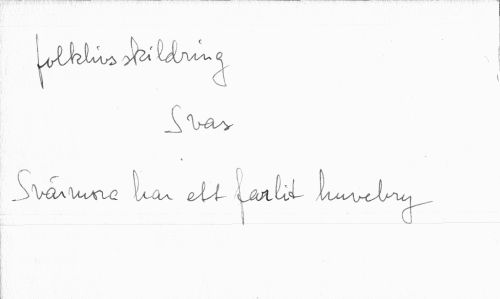 folklivsskildring
Svas
Svärmora har ett farlit huvebry